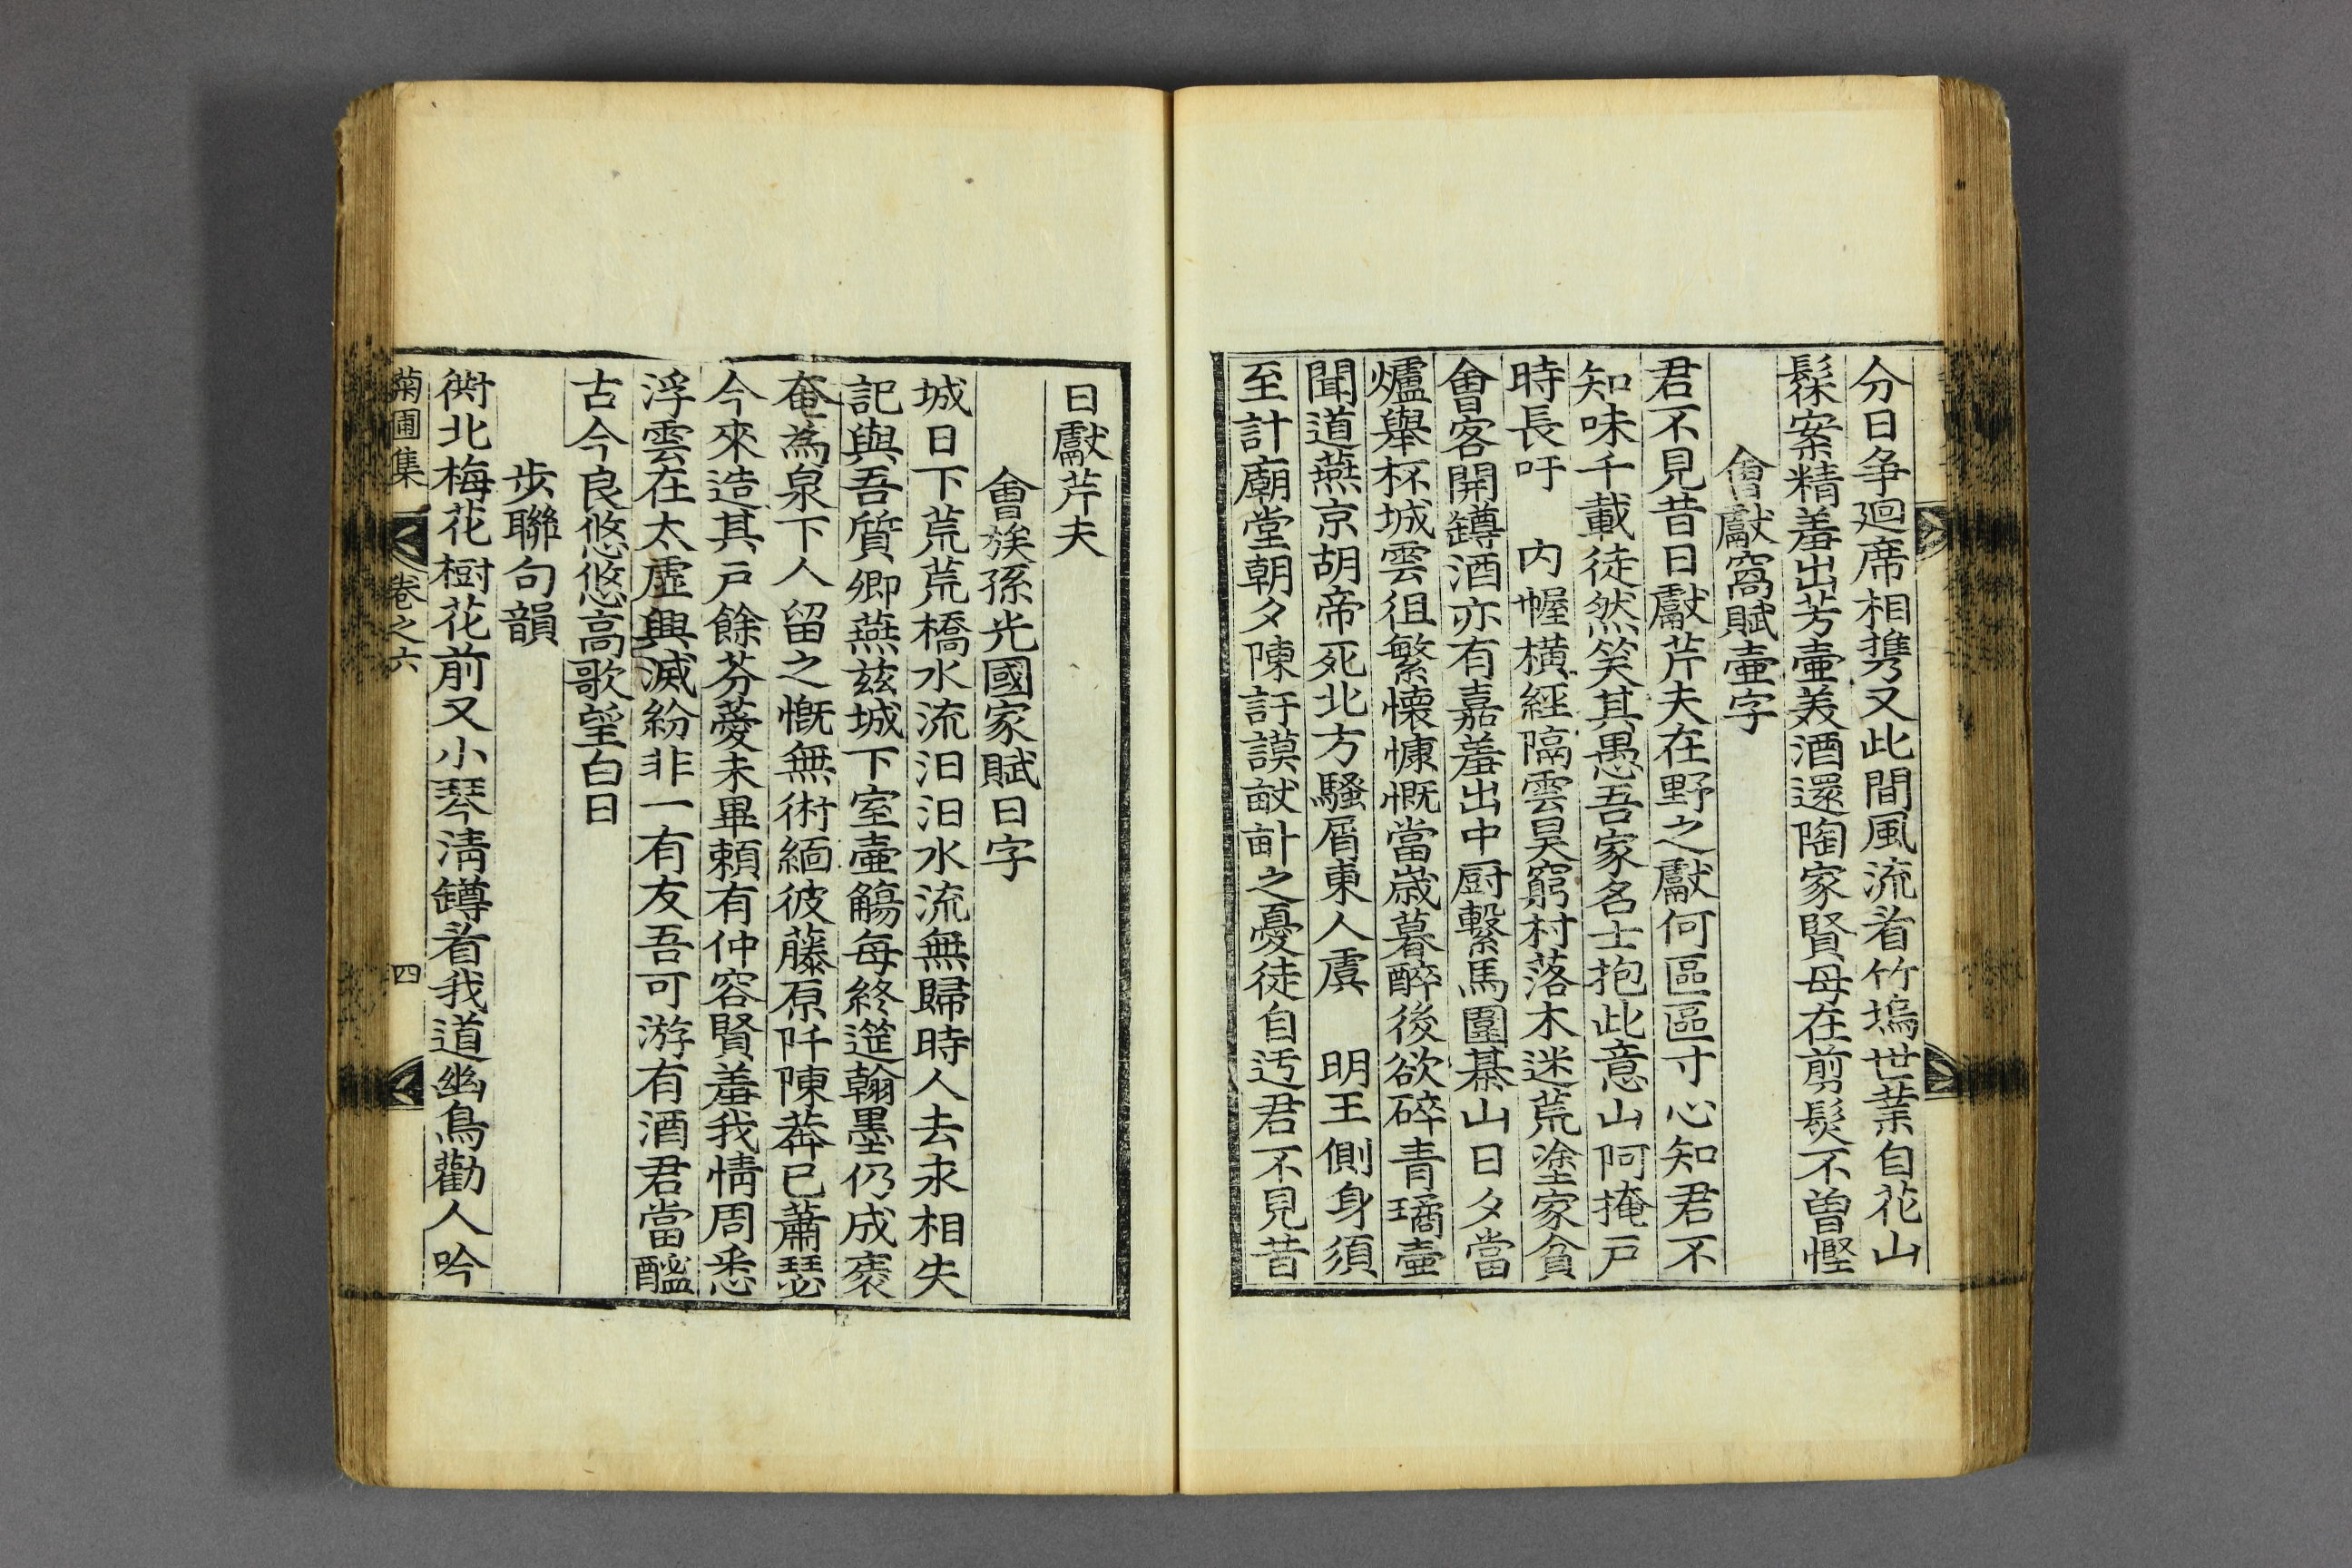 分日争廻席相携又此間風流肴竹塢世業自花山
髹案精羞出芳壷美酒還陶家賢母在剪髮不曽慳
會獻窩賦壷字
君不見昔日獻芹夫在野之獻何區區寸心知君不
知味千載徒然笑其愚吾家名士抱此意山阿掩戶
時長吁 内幄橫經隔雲昊窮村落木迷荒塗家貧
會客開罇酒亦有嘉羞出中厨繫馬圍碁山日夕當
爐舉杯城雲徂繁懷慷慨當歲暮醉後欲碎青璚壷
聞道燕京胡帝死北方騷屑東人虞 明王側身須
至計廟堂朝夕陳訏謨畎畝之憂徒自迃君不見昔
日獻芹夫
會族孫光國家賦日字
城日下荒荒橋水流汩汩水流無歸時人去永相失
記與吾質卿燕玆城下室壷觴每終筵翰墨仍成袠
奄為泉下人留之慨無術緬彼藤原阡陳莽已蕭瑟
今來造其戶餘芬薆未畢頼有仲容賢羞我情周悉
浮雲在太虛興滅紛非一有友吾可游有酒君當醘
古今良悠悠高歌望白日
步聯句韻
衖北梅花樹花前又小琴淸罇着我道幽鳥勸人吟
菊圃集 卷之六 四